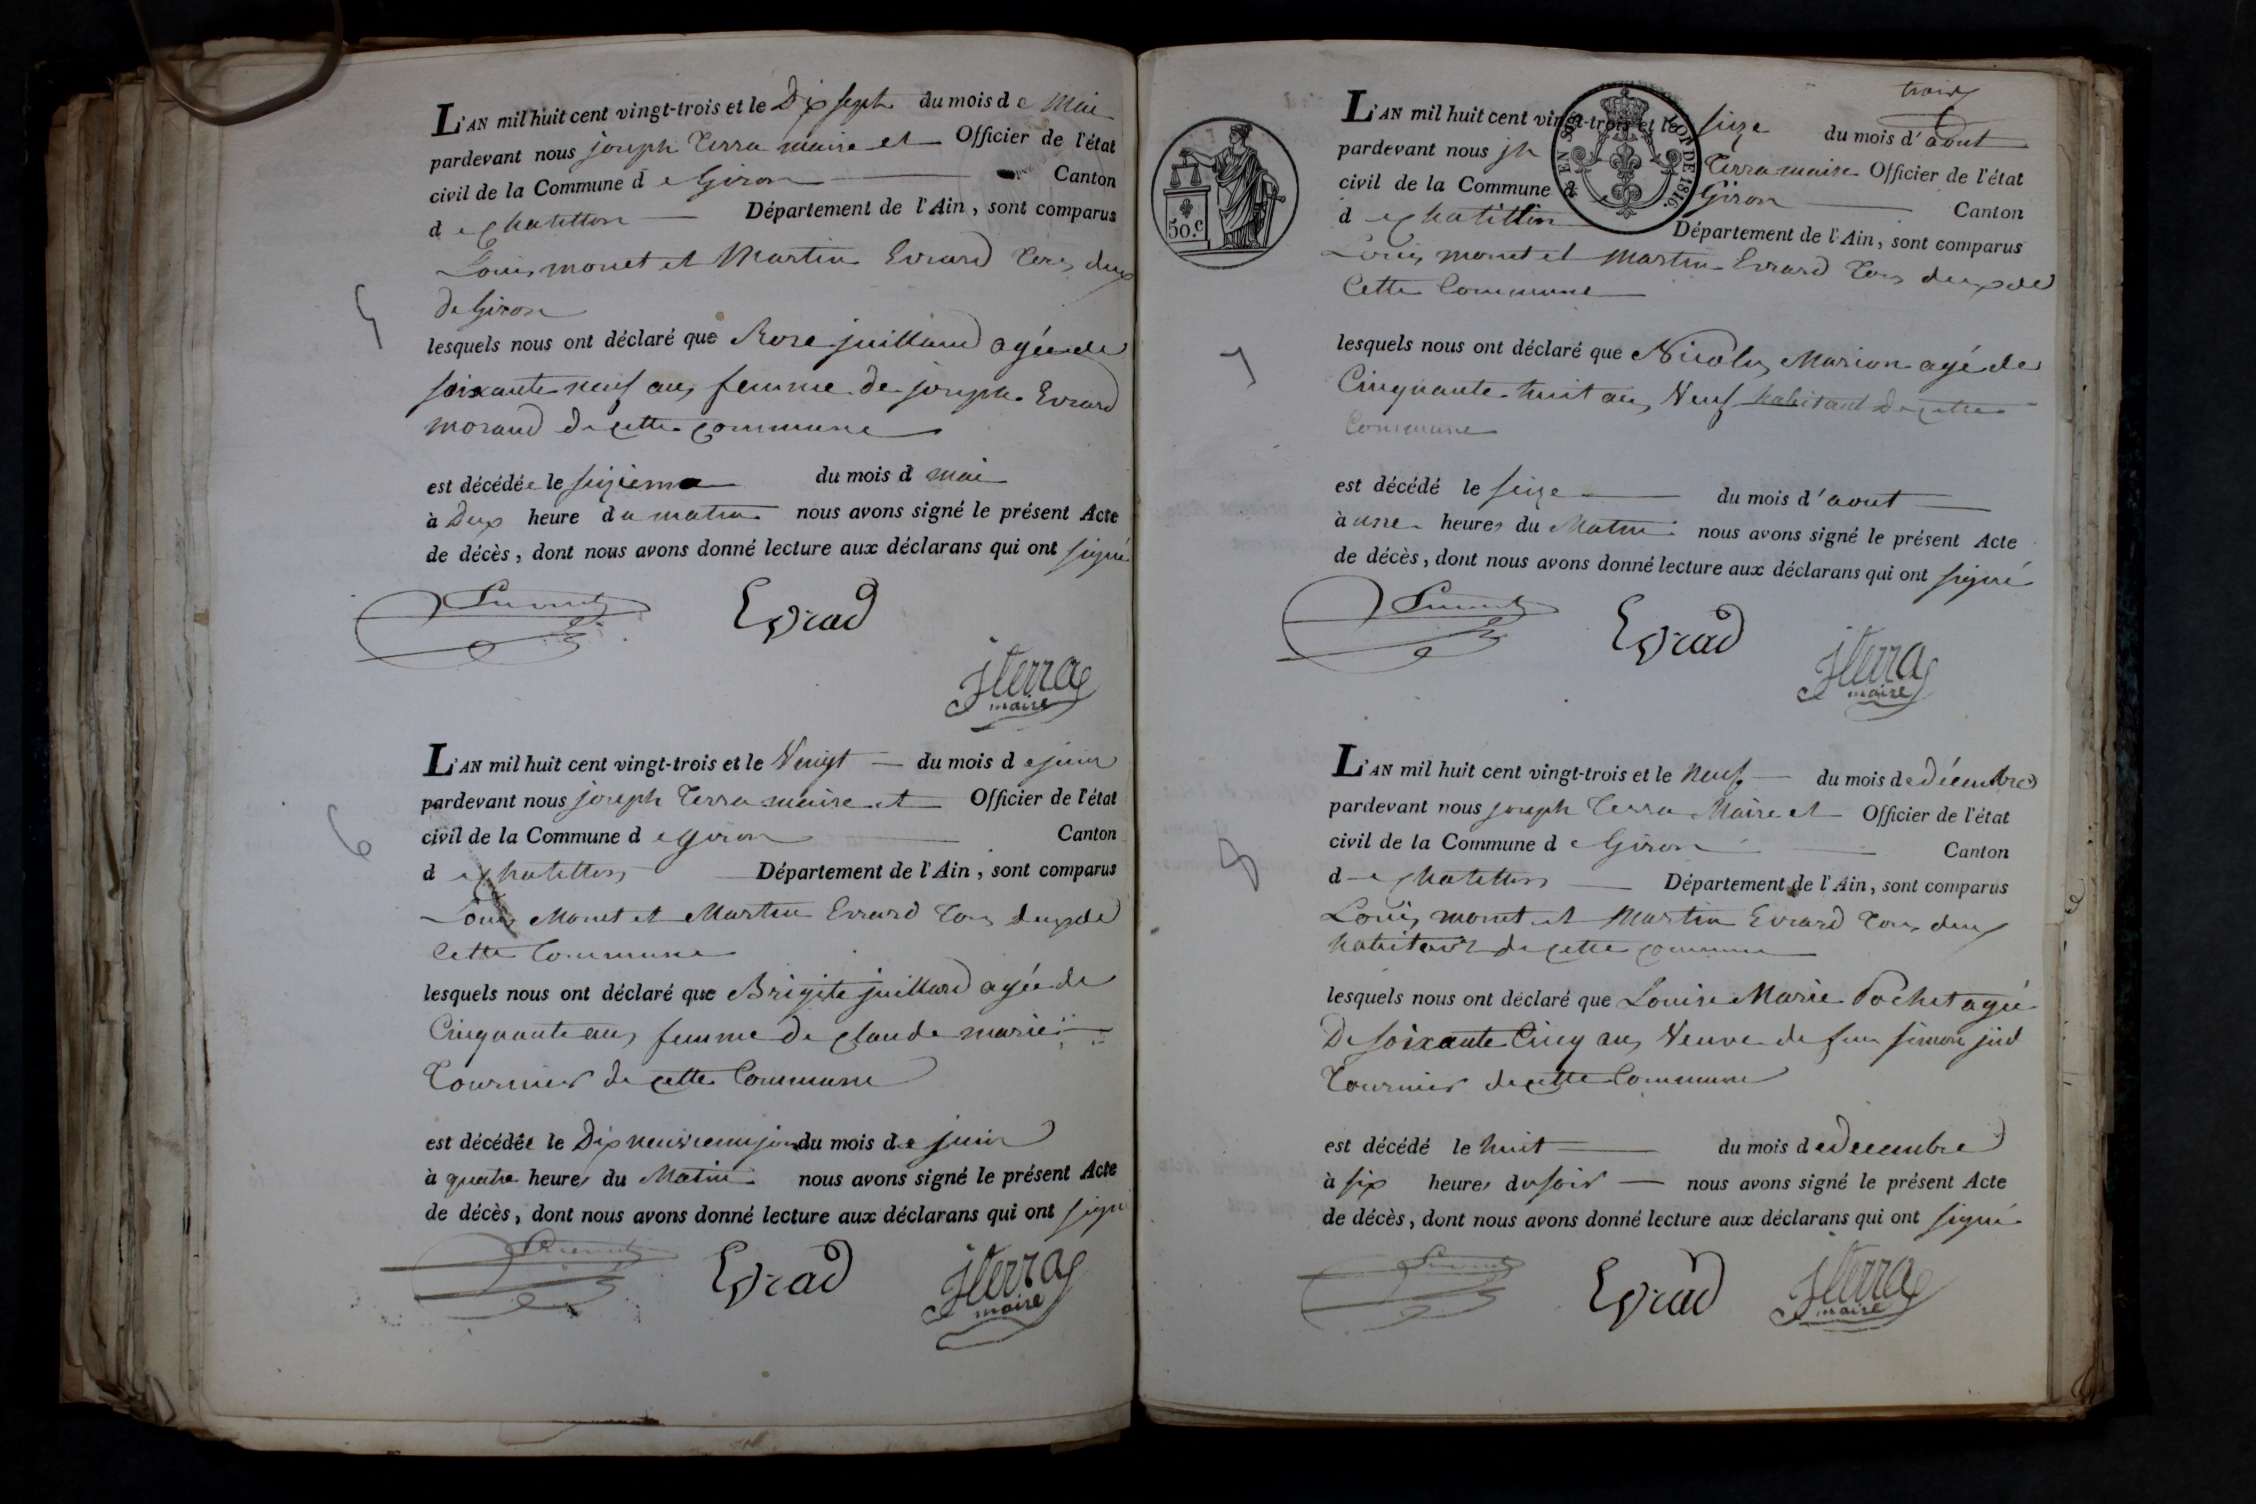 L'AN mil huit cent vingt-trois et le Dix sept du mois de Mai
pardevant nous joseph Terra maire et Officier de l'état
civil de la Commune de Giron Canton
de chatillon Département de l'Ain, sont comparus
Louis monet et Martin Evrard tous deux
de Giron
5
lesquels nous ont déclaré que Rose juilland agée de
soixante neuf ans femme de joseph Evrard
morand de cette commune
est décédée le sizieme du mois d mai
à Deux heure du matin nous avons signé le présent Acte
de décès, dont nous avons donné lecture aux déclarans qui ont signé
Evrad
jterra
maire
L'AN mil huit cent vingt-trois et le Vingt du mois de juin
pardevant nous joseph Terra maire et Officier de l'état
civil de la Commune de giron Canton
6
de chatillon Département de l'Ain, sont comparus
Louis Monet et Martin Evrard tous deux de
Cette Commune
lesquels nous ont déclaré que Brigite juilland agée de
Cinquante ans femme de claude marie
Tournier de cette Commune
est décédée le Dix neuvieme jour du mois de juin
à quatre heures du Matin nous avons signé le présent Acte
de décès, dont nous avons donné lecture aux déclarans qui ont signé
Evrad
jterra
maire
trois
L'AN mil huit cent vingt-trois et le seize du mois d'aout
pardevant nous jh Terra maire Officier de l'état
civil de la Commune de Giron Canton
de chatillon Département de l'Ain, sont comparus
50.c
LOI DE 1816.
Louis monet et Martin Evrard tous deux de
Cette Commune
7
lesquels nous ont déclaré que Nicolas Marion agé de
Cinquante huit ans Veuf habitant de cette
Commune
est décédé le seize du mois d'aout
à une heures du Matin nous avons signé le présent Acte
de décès, dont nous avons donné lecture aux déclarans qui ont signé
Evrad
jterra
maire
L'AN mil huit cent vingt-trois et le Neuf du mois de décembre
pardevant nous joseph Terra Maire et Officier de l'état
civil de la Commune de Giron Canton
8
de chatillon Département de l'Ain, sont comparus
Louis monet et Martin Evrard tous deux
habitant de cette commune
lesquels nous ont déclaré que Louise Marie Pochet agée
De soixante Cinq ans Veuve de feu simon jud
Tournier de cette Commune
est décédé le huit du mois de decembre
à six heures du soir nous avons signé le présent Acte
de décès, dont nous avons donné lecture aux déclarans qui ont signé
Evrad
jterra
maire